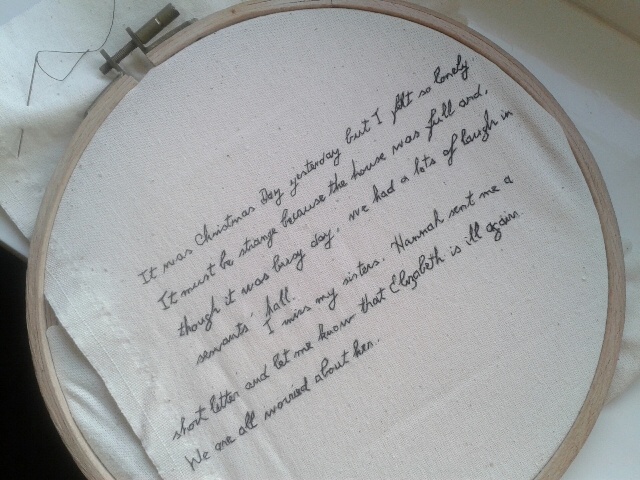 It was Christmas Day yesterday but I felt so lonely
It must be strange because the house was full and,
though it was busy day, we had a lots of laugh in
servants' hall.
I miss my sisters. Hannah sent me a
short letter and let me know that Elizabeth is ill again.
We are all worried about her.